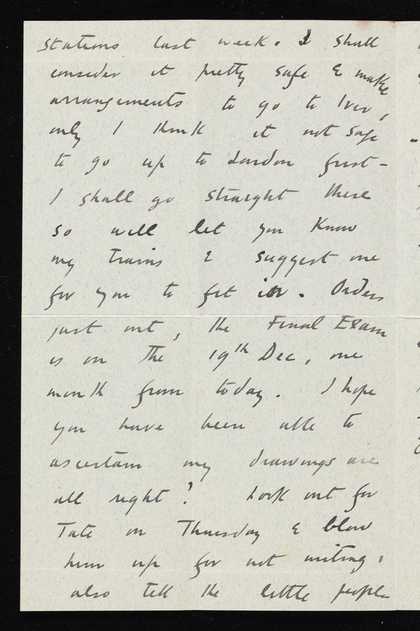 stations last week. I shall
consider it pretty safe & make
arrangements to go to Iver,
only I think it not safe
to go up to London first -
I shall go straight there
so will let you know
my trains & suggest one
for you to get in. Orders
just out, the Final Exam
is on the 19th Dec, one
month from today. I hope
you have been able to
ascertain my drawings are
all right? Look out for
Tate on Thursday & blow
him up for not writing,
also tell the little people